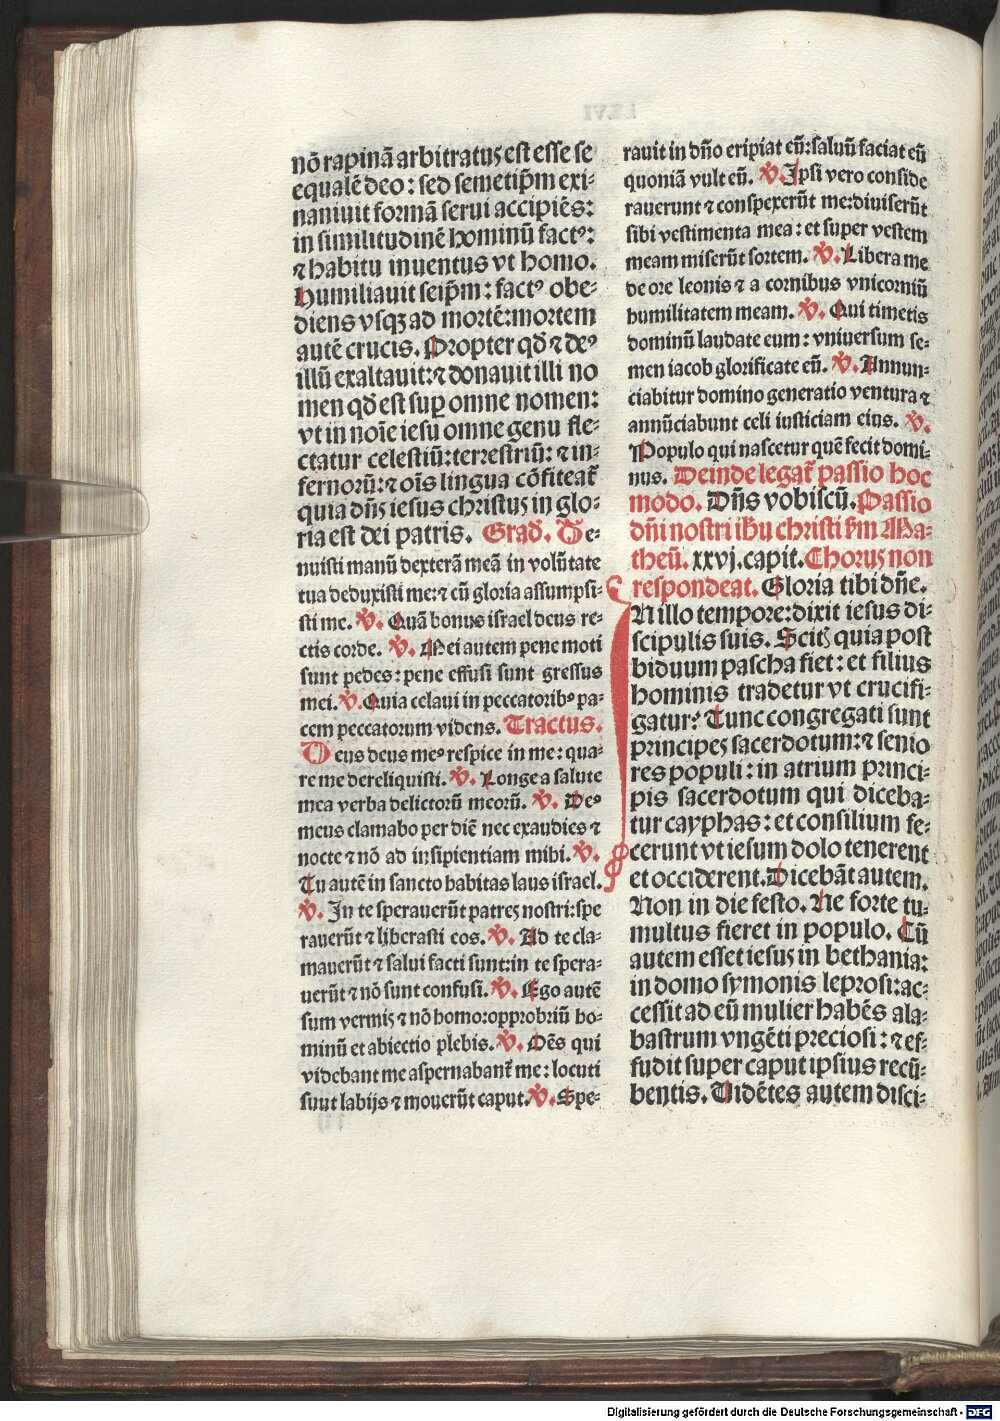 nō rapinā arbitratus est esse se
equalē deo: sed semetip̄m exi-
naniuit formā serui accipiēs:
in similitudinē hominū factꝰ:
⁊ habitu inuentus vt homo.
Humiliauit seip̄m: factꝰ obe-
diens vsqꝫ ad mortē: mortem
autē crucis. Propter qd̄ ⁊ deꝰ
illū exaltauit: ⁊ donauit illi no
men qd̄ est suꝑ omne nomen:
vt in noīe iesu omne genu fle-
ctatur celestiū: terrestriū: ⁊ in-
fernorū: ⁊ oīs lingua cōfiteat᷑
quia dn̄s iesus christus in glo-
ria est dei patris. Grad̄. Te-
nuisti manū dexterā meā in volūtate
tua deduxisti me: ⁊ cū gloria assumpsi-
sti me. ℣. Quā bonus israel deus re-
ctis corde. ℣. Mei autem pene moti
sunt pedes: pene effusi sunt gressus
mei. ℣. Quia celaui in peccatoribꝰ pa-
cem peccatorum videns. Tractus.
Deus deus meꝰ respice in me: qua-
re me dereliquisti. ℣. Longe a salute
mea verba delictorū meorū. ℣. Deꝰ
meus clamabo per diē nec exaudies ⁊
nocte ⁊ nō ad insipientiam mihi. ℣.
Tu autē in sancto habitas laus israel.
℣. In te sperauerūt patres nostri: spe
rauerūt ⁊ liberasti eos. ℣. Ad te cla-
mauerūt ⁊ salui facti sunt: in te spera-
uerūt ⁊ nō sunt confusi. ℣. Ego autē
sum vermis ⁊ nō homo: opprobriū ho-
minū et abiectio plebis. ℣. Oēs qui
videbant me aspernabant᷑ me: locuti
sunt labijs ⁊ mouerūt caput. ℣. Spe-
rauit in dn̄o eripiat eū: saluū faciat eū
quoniā vult eū. ℣. Ipsi vero conside
rauerunt ⁊ conspexerūt me: diuiserūt
sibi vestimenta mea: et super vestem
meam miserūt sortem. ℣. Libera me
de ore leonis ⁊ a cornibus vnicorniū
humilitatem meam. ℣. Qui timetis
dominū laudate eum: vniuersum se-
men iacob glorificate eū. ℣. Annun-
ciabitur domino generatio ventura ⁊
annūciabunt celi iusticiam eius. ℣.
Populo qui nascetur quē fecit domi-
nus. Deinde legat᷑ passio hoc
modo. Dn̄s vobiscū. Passio
dn̄i nostri ihu christi ẜm Ma-
theū. xxvj. capit. Chorus non
respondeat. Gloria tibi dn̄e.
IN illo tempore: dixit iesus di-
scipulis suis. Scitꝭ quia post
biduum pascha fiet: et filius
hominis tradetur vt crucifi-
gatur? Tunc congregati sunt
principes sacerdotum: ⁊ senio
res populi: in atrium princi-
pis sacerdotum qui diceba-
tur cayphas: et consilium fe-
cerunt vt iesum dolo tenerent
et occiderent. Dicebāt autem.
Non in die festo. Ne forte tu-
multus fieret in populo. Cū
autem esset iesus in bethania:
in domo symonis leprosi: ac-
cessit ad eū mulier habēs ala-
bastrum vngēti preciosi: ⁊ ef-
fudit super caput ipsius recū-
bentis. Uidētes autem disci-
Digitalisierung gefördert durch die Deutsche Forschungsgemeinschaft - DFG